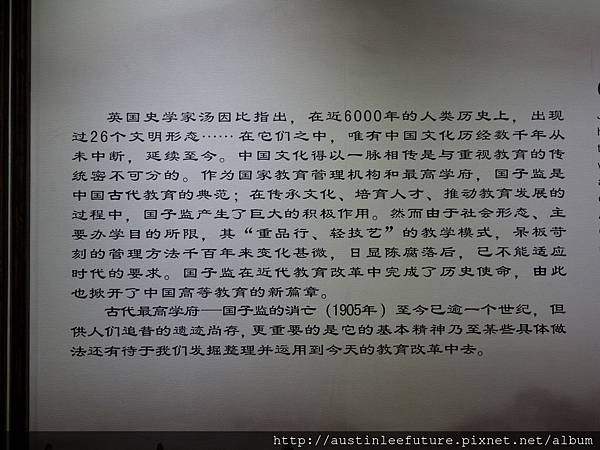 英国史学家汤因比指出，在近6000年的人类历史上，出现
过26个文明形态……在它们之中，唯有中国文化历经数千年从
未中断，延续至今。中国文化得以一脉相传是与重视教育的传
统密不可分的。作为国家教育管理机构和最高学府，国子监是
中国古代教育的典范；在传承文化、培育人才、推动教育发展的
过程中，国子监产生了巨大的积极作用。然而由于社会形态、主
要办学目的所限，其“重品行、轻技艺”的教学模式，呆板苛
刻的管理方法千百年来变化甚微，日显陈腐落后，已不能适应
时代的要求。国子监在近代教育改革中完成了历史使命，由此
也掀开了中国高等教育的新篇章。
古代最高学府——国子监的消亡（1905年）至今已逾一个世纪，但
供人们追昔的遗迹尚存，更重要的是它的基本精神乃至某些具体做
法还有待于我们发掘整理并运用到今天的教育改革中去。
http://austinleefuture.pixnet.net/album